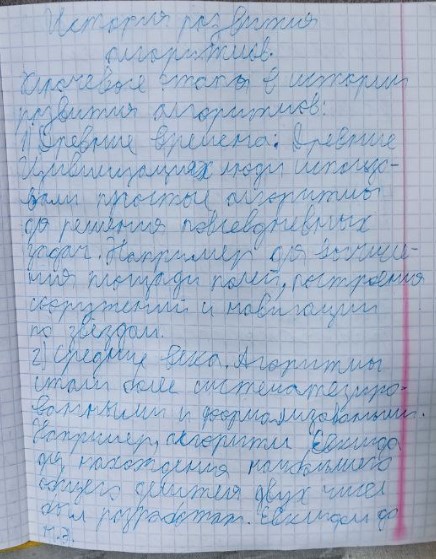 История развития
алгоритмов.
Ключевые этапы в истории
развития алгоритмов:
1) Древние времена: Древние
цивилизациях люди использо-
вали простые алгоритмы
до решения повседневных
задач. Например для вычисле-
ния площади полей, построения
сооружений и навигации
по звездам.
2) Средние века. Алгоритмы
стали более систематизиро-
ванными и формализоваными.
Например, алгоритм Евклида
для нахождения наибольшего
общего делителя двух чисел
был разработан Евклидом до
н.э.